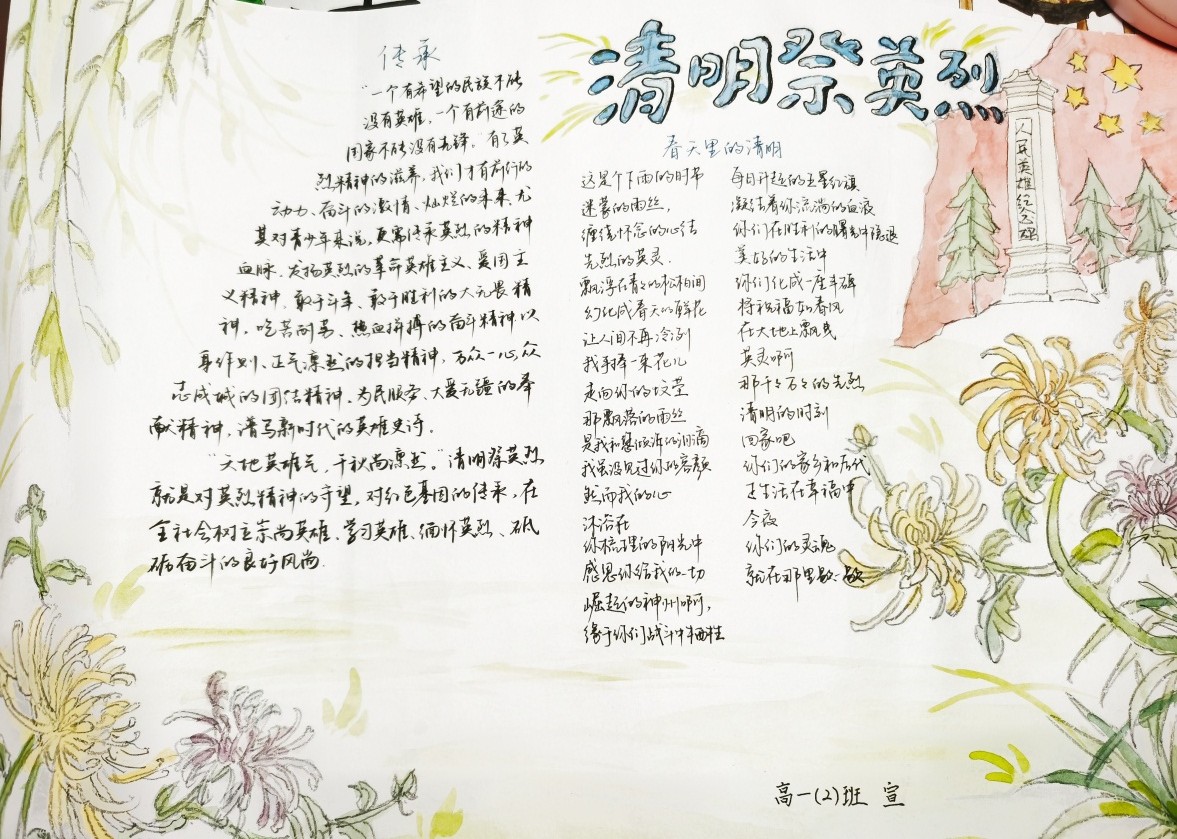 清明祭英烈
传承
"一个有希望的民族不能
没有英雄，一个有前途的
国家不能没有先锋。"有了英
烈精神的滋养，我们才有前行的
动力、奋斗的激情、灿烂的未来。尤
其对青少年来说，更需传承英烈的精神
血脉、发扬英烈的革命英雄主义、爱国主
义精神、敢于斗争、敢于胜利的大无畏精
神，吃苦耐劳、热血拼搏的奋斗精神以
身作则、正气凛然的担当精神，万众一心，众
志成城的团结精神、为民服务、大爱无疆的奉
献精神，谱写新时代的英雄史诗。
"天地英雄气，千秋尚凛然。"清明祭英烈
就是对英烈精神的守望，对红色基因的传承，在
全社会树立崇尚英雄、学习英雄、缅怀英烈、砥
砺奋斗的良好风尚.
春天里的清明
这是个下雨的时节
迷蒙的雨丝，
缠绕怀念的心结
先烈的英灵.
飘浮在青々的松柏间
幻化成春天的鲜花
让人间不再冷冽
我手捧一束花儿
走向你的坟茔
那飘落的雨丝
是我和思倾诉的泪滴
我虽没见过你的容颜
然而我的心
沐浴在
你梳理的阳光中
感恩你给我的一切
崛起的神州啊，
缘于你们战斗中牺牲
每日升起的五星红旗
凝结着你流淌的血液
你们在胜利的曙光中隐退
美好的生活中
你们化成一座丰碑
将祝福如春风
在大地上飘曳
英灵啊
那千々万々的先烈
清明的时刻
回家吧
你们的家乡和后代
正生活在幸福中
今夜
你们的灵魂
就在那里歇一歇
人民英雄纪念碑
高一(2)班 宣